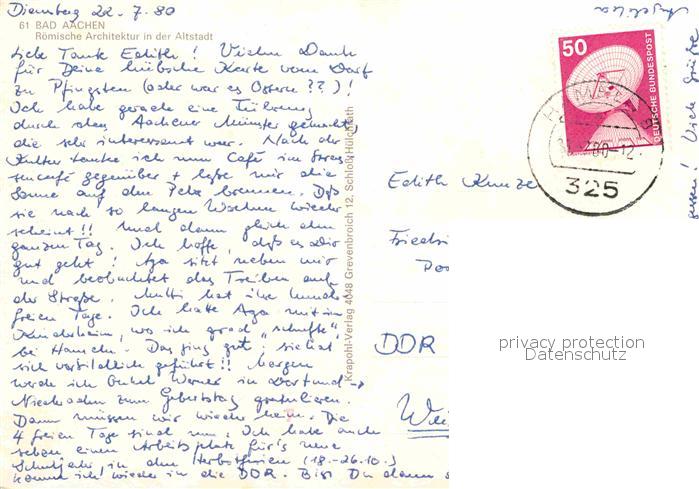 Dienstag 22.7.80
61 BAD AACHEN
Römische Architektur in der Altstadt
Liebe Tante Edith! Vielen Dank
für Deine hübsche Karte vom Dorf
zu Pfingsten (oder war es Ostern??)!
Ich habe gerade eine Führung
durch den Aachener Münster gemacht,
die sehr interessant war. Nach der
Kultur tanke ich nun Café im Stras
sencafé gegenüber + lasse mir die
Sonne auf den Pelz brennen. Daß
sie nach so langen Wochen wieder
scheint!! Und dann gleich den
ganzen Tag. Ich hoffe, daß es Dir
gut geht! Aga sitzt neben mir
und beobachtet das Treiben auf
der Straße. Mutti hat ihre hunde-
freien Tage. Ich hatte Aga mit im
Kinderheim, wo ich grad „schufte"
bei Hameln. Das ging gut, sie hat
sich vorbildlich geführt!! Morgen
werde ich Onkel Werner in Dortmund-
zum Geburtstag gratulieren.
Dann müssen wir wieder heim. Die
4 freien Tage sind um. Ich habe auch
schon einen Arbeitsplatz für's neue
Schuljahr in den Herbstferien (18.-26.10.)
komm ich wieder in die DDR. Bist Du dann
Krapohl-Verlag 4048 Grevenbroich 12, Schloß Hülchrath
Angelika
Viele Grüße
50
DEUTSCHE BUNDESPOST
HAMELN
80-12
325
Edith Kunze
Friedri
DDR
privacy protection
Datenschutz
Wei